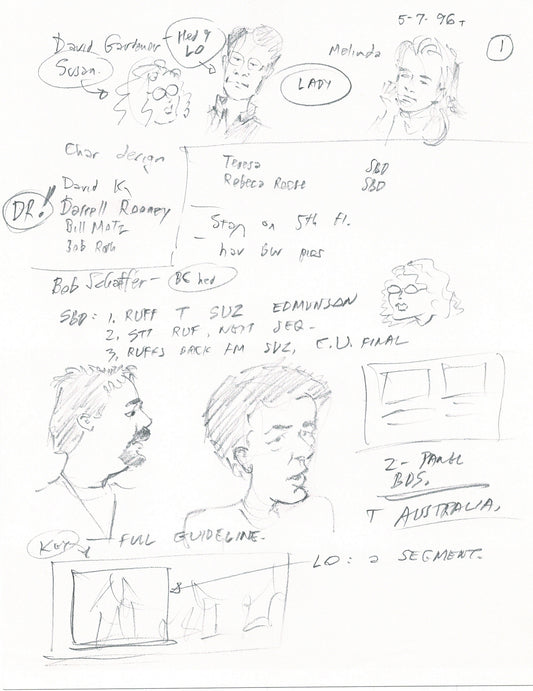 5-7-96 T
David Gardner - Hed of
LO
Susan.
Melinda
1
LADY
Char design
David K,
DR! Darrell Rooney
Bill Motz
Bob Roth
Teresa SBD
Rebeca Reese SBD
- Stay on 5th fl.
- hav bw pics
Bob Schaffer - BG hed
SBD: 1. RUFF T SUZ EDMUNSON
2. STT RUF, NEXT SEQ -
3. RUFFS BACK FM SUZ, C.U. FINAL
2 - PANEL
BDS.
T AUSTRALIA.
KEY - FULL GUIDELINE.
LO: 2 SEGMENT.